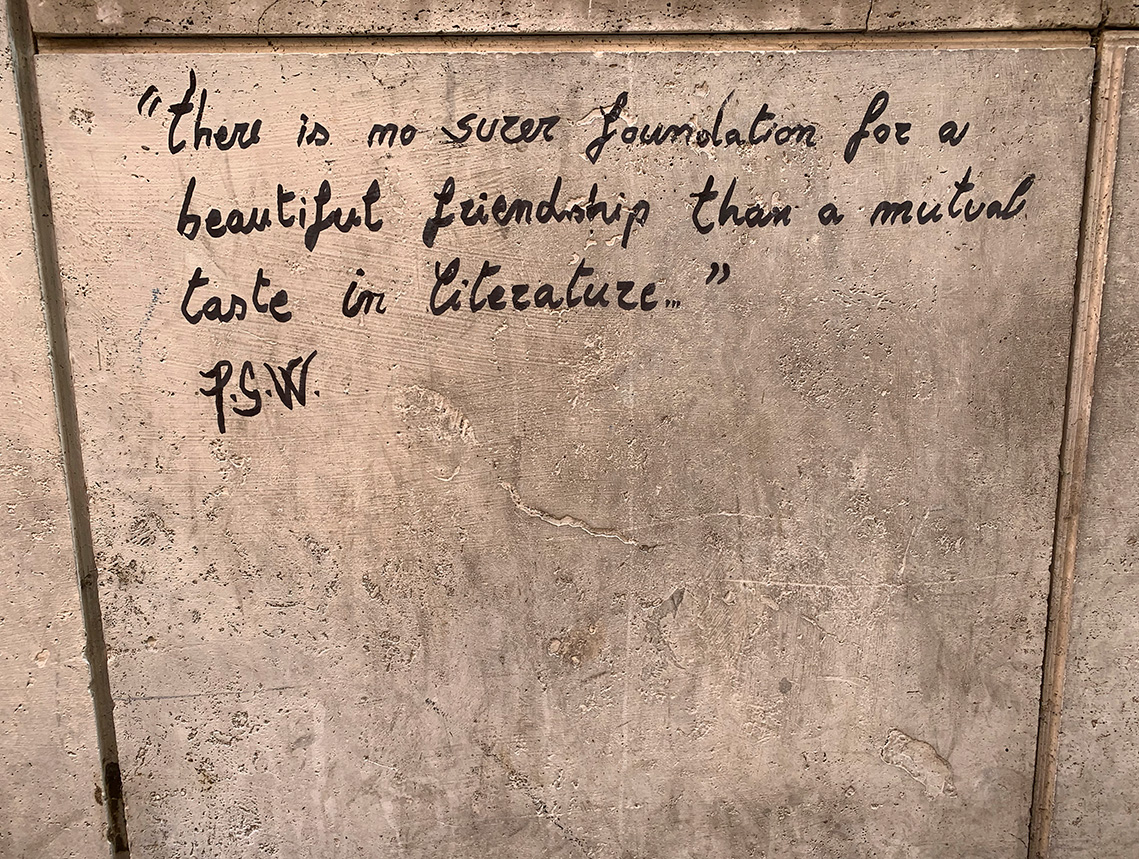 "there is no surer foundation for a
beautiful friendship than a mutual
taste in literature..."
P.G.W.